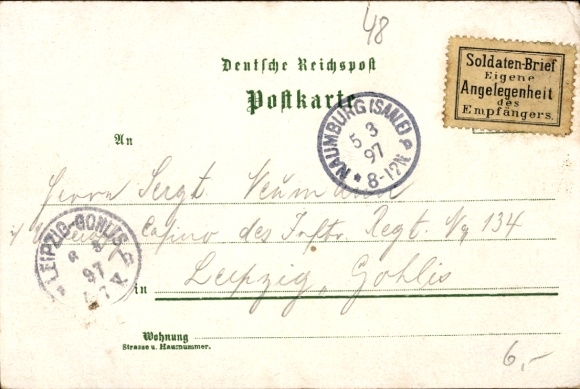 48
Deutsche Reichspost
Postkarte
Soldaten-Brief
Eigene
Angelegenheit
des
Empfängers.
NAUMBURG (SAALE)
5 3
97
* 8-12N
An
Herrn Sergt. Neumann
Casino des Inftr. Regt. No 134
LEIPZIG-GOHLIS
97
in Leipzig, Gohlis
Wohnung
Strasse u. Hausnummer.
6,-